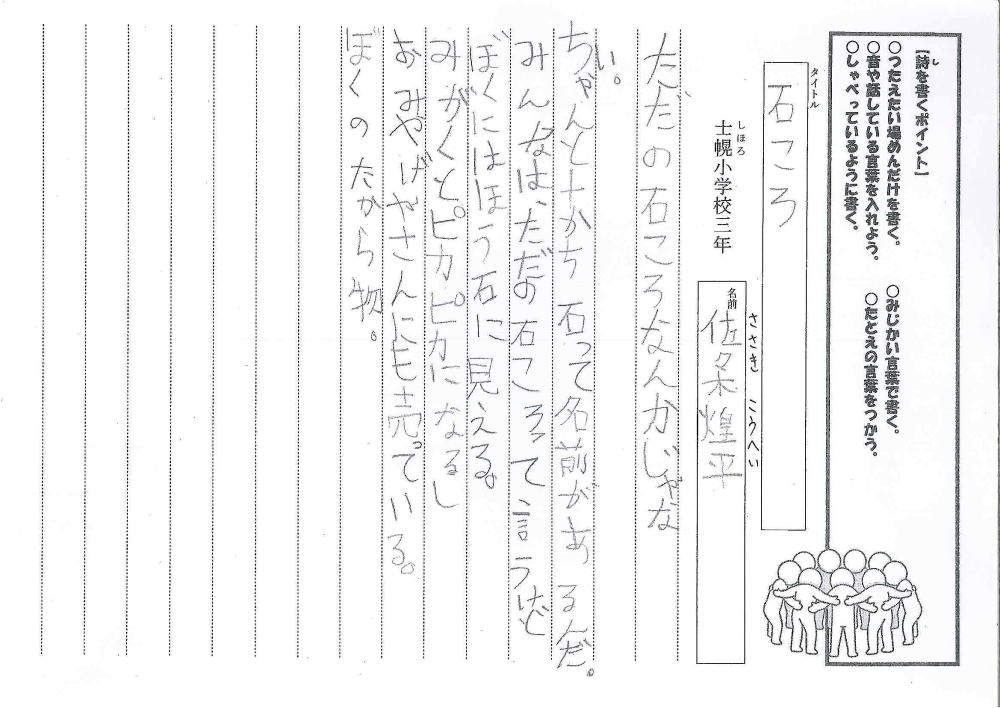 【詩を書くポイント】
し
○つたえたい場めんだけを書く。
○みじかい言葉で書く。
○音や話している言葉を入れよう。
○たとえの言葉をつかう。
○しゃべっているように書く。
タイトル
石ころ
しほろ
士幌小学校三年
ささき こうへい
名前
佐々木煌平
ただの石ころなんかじゃな
い。
ちゃんと十かち石って名前があるんだ。
みんなは、ただの石ころって言うけど
ぼくにはほう石に見える。
みがくとピカピカになるし
おみやげやさんにも売っている。
ぼくのたから物。